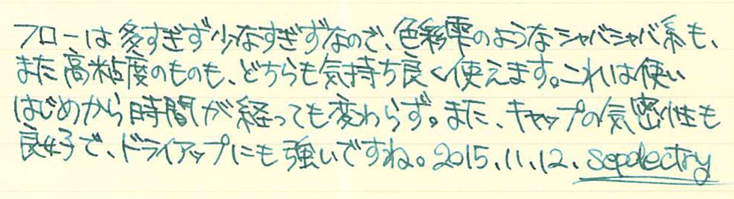 フローは多すぎず少なすぎずなので、色彩雫のようなシャバシャバ系も、
また高粘度のものも、どちらも気持ち良く使えます。これは使い
はじめから時間が経っても変わらず。また、キャップの気密性も
良好で、ドライアップにも強いですね。2015.11.12. sepolectry